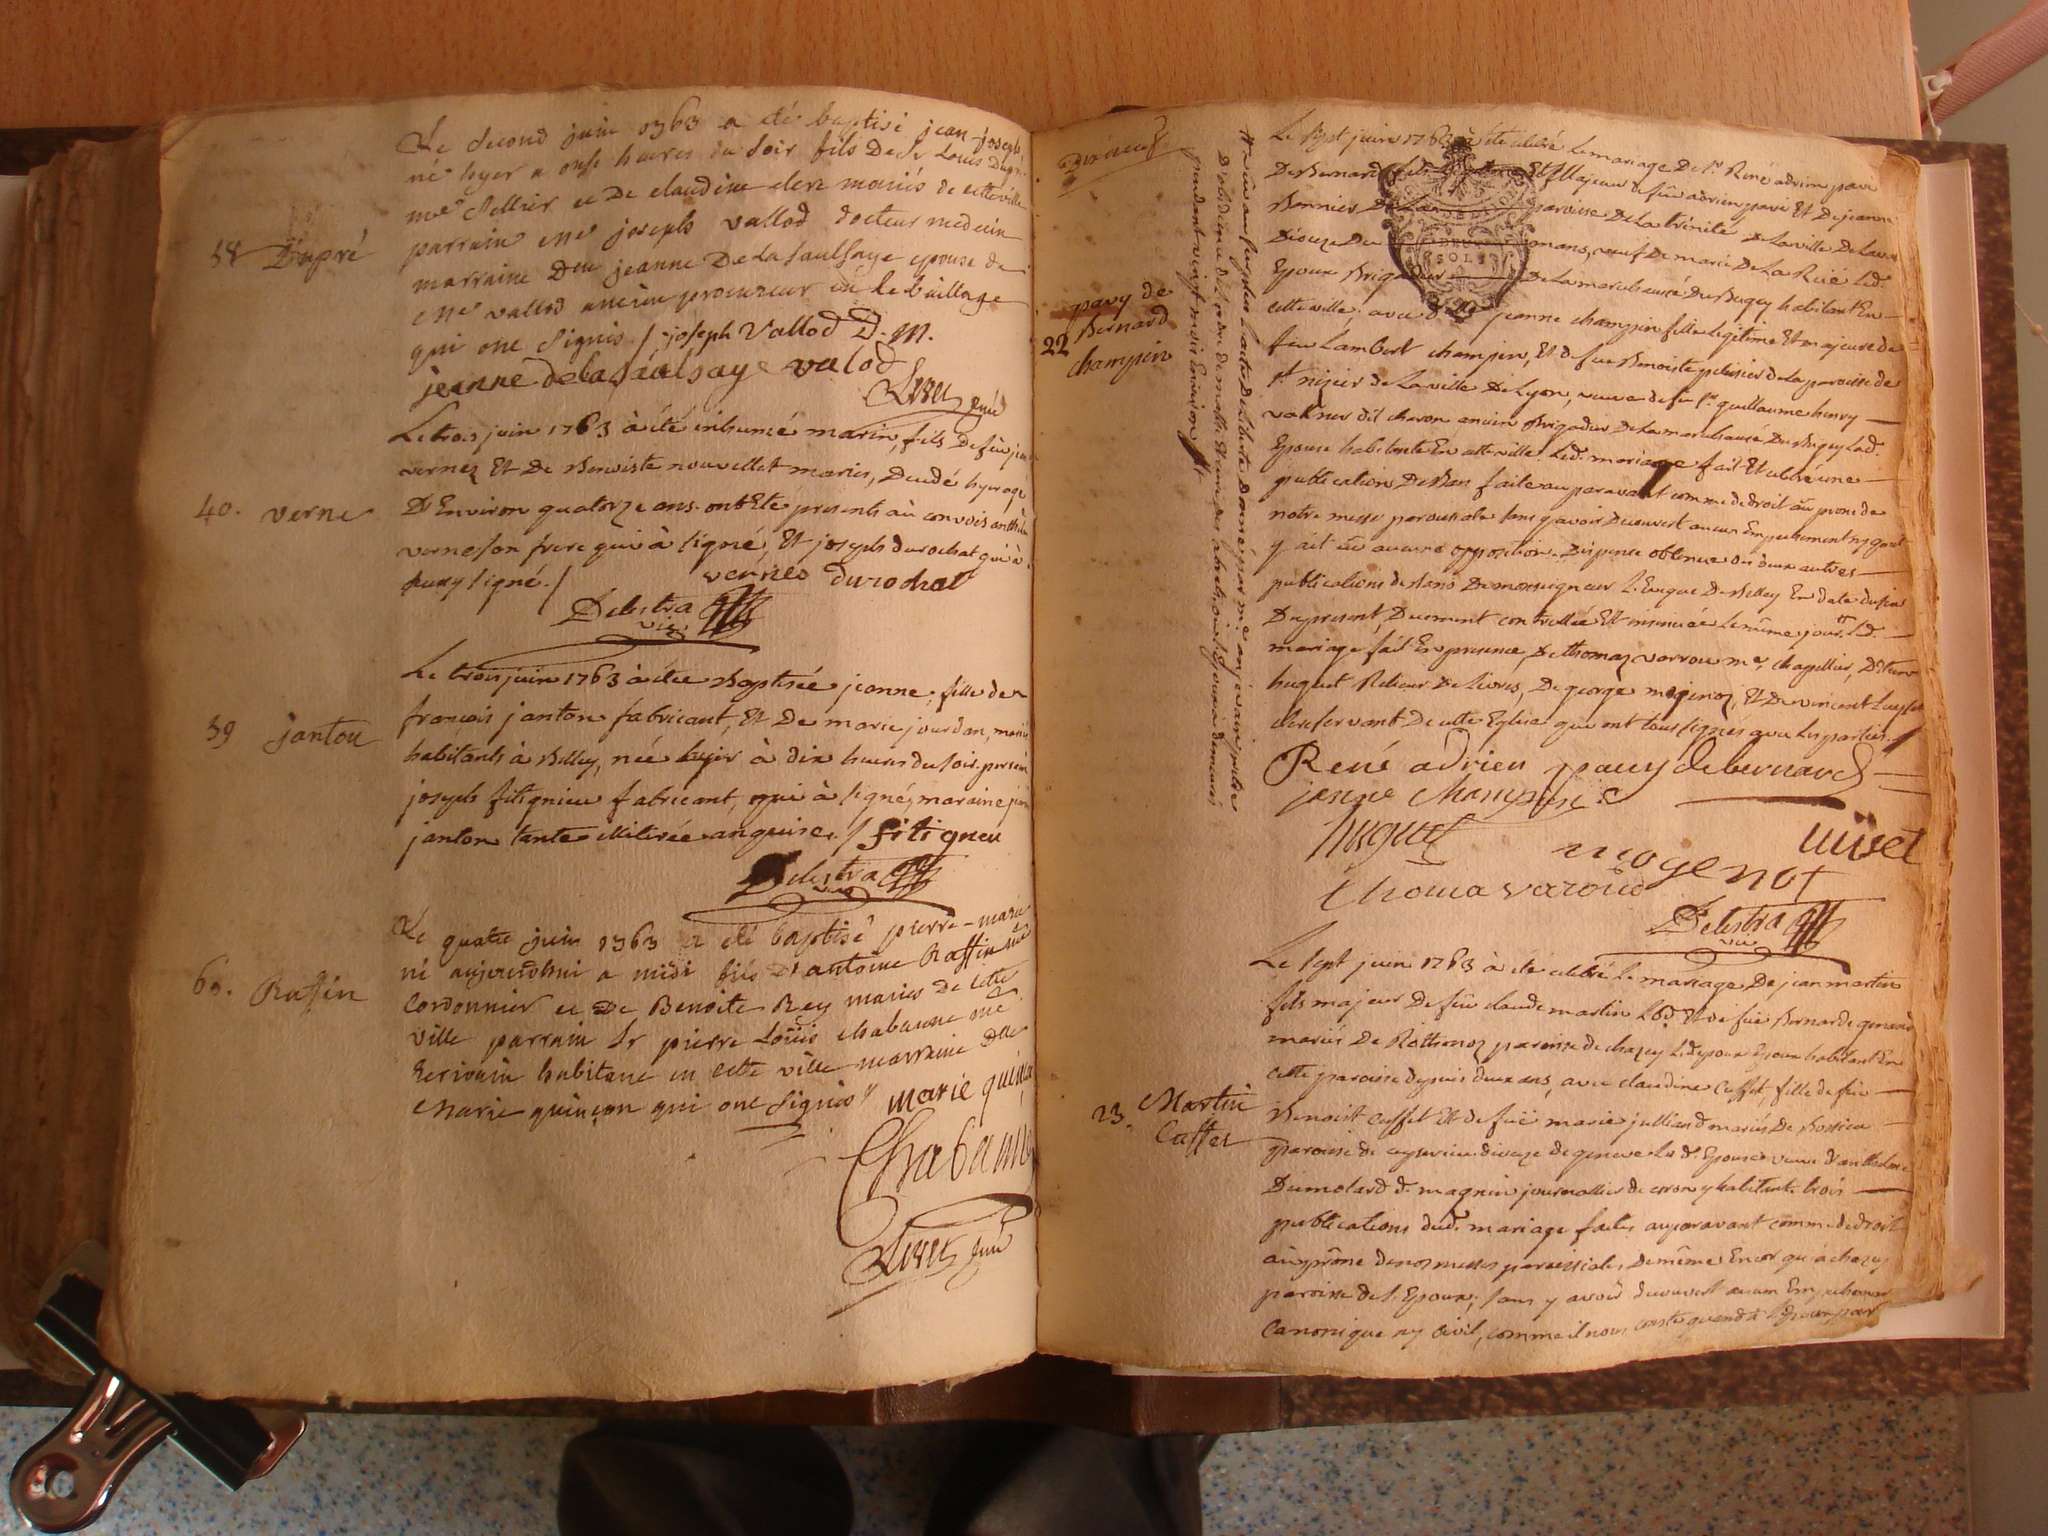 Le second juin 1763 a été baptisé jean-joseph
né hyer a onse heures du soir fils De Sr Louis Dupré
me sellier et De claudine clerc mariés de cette ville
58 Dupré
parrain me joseph vallod docteur medecin
marraine Dlle jeanne De la saulsaye epouse de
me vallod ancien procureur au bailliage
qui ont signés / joseph Vallod D. M.
jeanne de la saulsaye valod
Livet curé
Le trois juin 1763 à été inhumé marin, fils De feu
vernes Et De Benoiste nouvellet mariés, Decedé hyer agé
40. verne
D'Environ quatorze ans. ont Eté presents au convois
verne son frere qui à signé, Et joseph durochat qui à
aussy signé. /
vernes durochat
Delestra vic.
Le trois juin 1763 à étée Baptisée jeanne, fille de
françois janton fabricant, Et De marie jourdan, mariés
59 janton
habitants à Belley, née hyer à dix heures du soir. parrain
joseph fitignieu fabricant, qui à signé, maraine
janton tante illiterée enquise. / fitigneu
Delestra vic.
Le quatre juin 1763 a été baptisé pierre-marie
né aujourdhui a midi fils D'antoine Raffin me
60. Raffin
cordonnier et De Benoite Rey mariés de cette
ville parrain Sr pierre Loüis chabanne me
Ecrivain habitant en cette ville marraine Dlle
marie quinçon qui ont signés // marie quinçon
Chabanne
Livet curé
Le sept juin 1763 à été celebré le mariage De Sr René adrien pavy
De Bernard fils Et Majeur de feu adrien pavi Et De jeanne
Bonnier, paroisse De La trinité De la ville De Laval
Dioceze Du mans, veuf De marie De La Ruë Led.
Epoux Brigadier De la marechaussé Du Bugey habitant En
DEUX SOLS
pavy de
22 Bernard
champin
cette ville. avec Dlle jeanne champin fille legitime Et majeure de
feu Lambert champin, Et de fue Benoiste pelissier de la paroisse de
st nizier de La ville De Lyon, veuve de feu Sr guillaume henry
dit cheron ancien Brigadier De la marechaussé Du Bugey Lad.
Epouse habitante En cette ville. Led. mariage fait Et celebré une
publication De Bans faite auparavant comme de droit au prone de
notre messe paroissiale sans y avoir Decouvert aucun Empechement ny quil
y ait eû aucune opposition. Dispense obtenue des deux autres
publications de bans De monseigneur L'Eveque De Belley En date du six
Du present, Duement controllée Et insinuée le même jour. Led.
mariage fait En presence, De thomas varrou me chapellier,
huguet Relieur De Livres, De george mogenoz, Et De vincent Luyset
clerc servant De cette Eglise qui ont tous signés avec les parties. /
René adrien pavy de bernard
jeanne champin
huguet mogenot
Thoma varoud
Delestra vic.
Le sept juin 1763 à été celebré Le mariage De jean martin
fils majeur De feu claude martin Et de fue Bernarde
mariés De Rothonoz paroisse de chazey Led. Epoux habitant En
cette paroisse depuis deux ans, avec claudine Cuffet, fille de feu
23. Martin
Cuffet
Benoist Cuffet Et de fuë marie julliand mariés De Bossieu
paroisse de ceyserieu dioceze de geneve Lad. Epouse veuve d'anthelme
Dumolard d. magnin journallier de coron y habitant. trois
publications dud. mariage faites auparavant comme de droit
au prône de nos messes paroissiales, De même Encor qu'à chazey
paroisse de l'Epoux, sans y avoir decouvert aucun Empechement
canonique ny civil, comme il nous conste quand à l'Epoux par